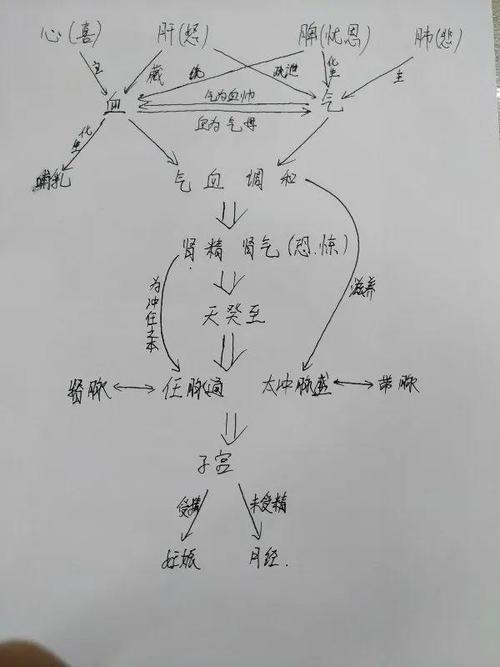 心(喜) 肝(怒) 脾(忧思) 肺(悲)
主 藏 统 疏泄 化生 主
血 气为血帅 气
血为气母
化生
哺乳 气血调和
肾精 肾气(恐.惊)
为冲任之本 滋养
天癸至
督脉 任脉通 太冲脉盛 带脉
子宫
受精 未受精
妊娠 月经.